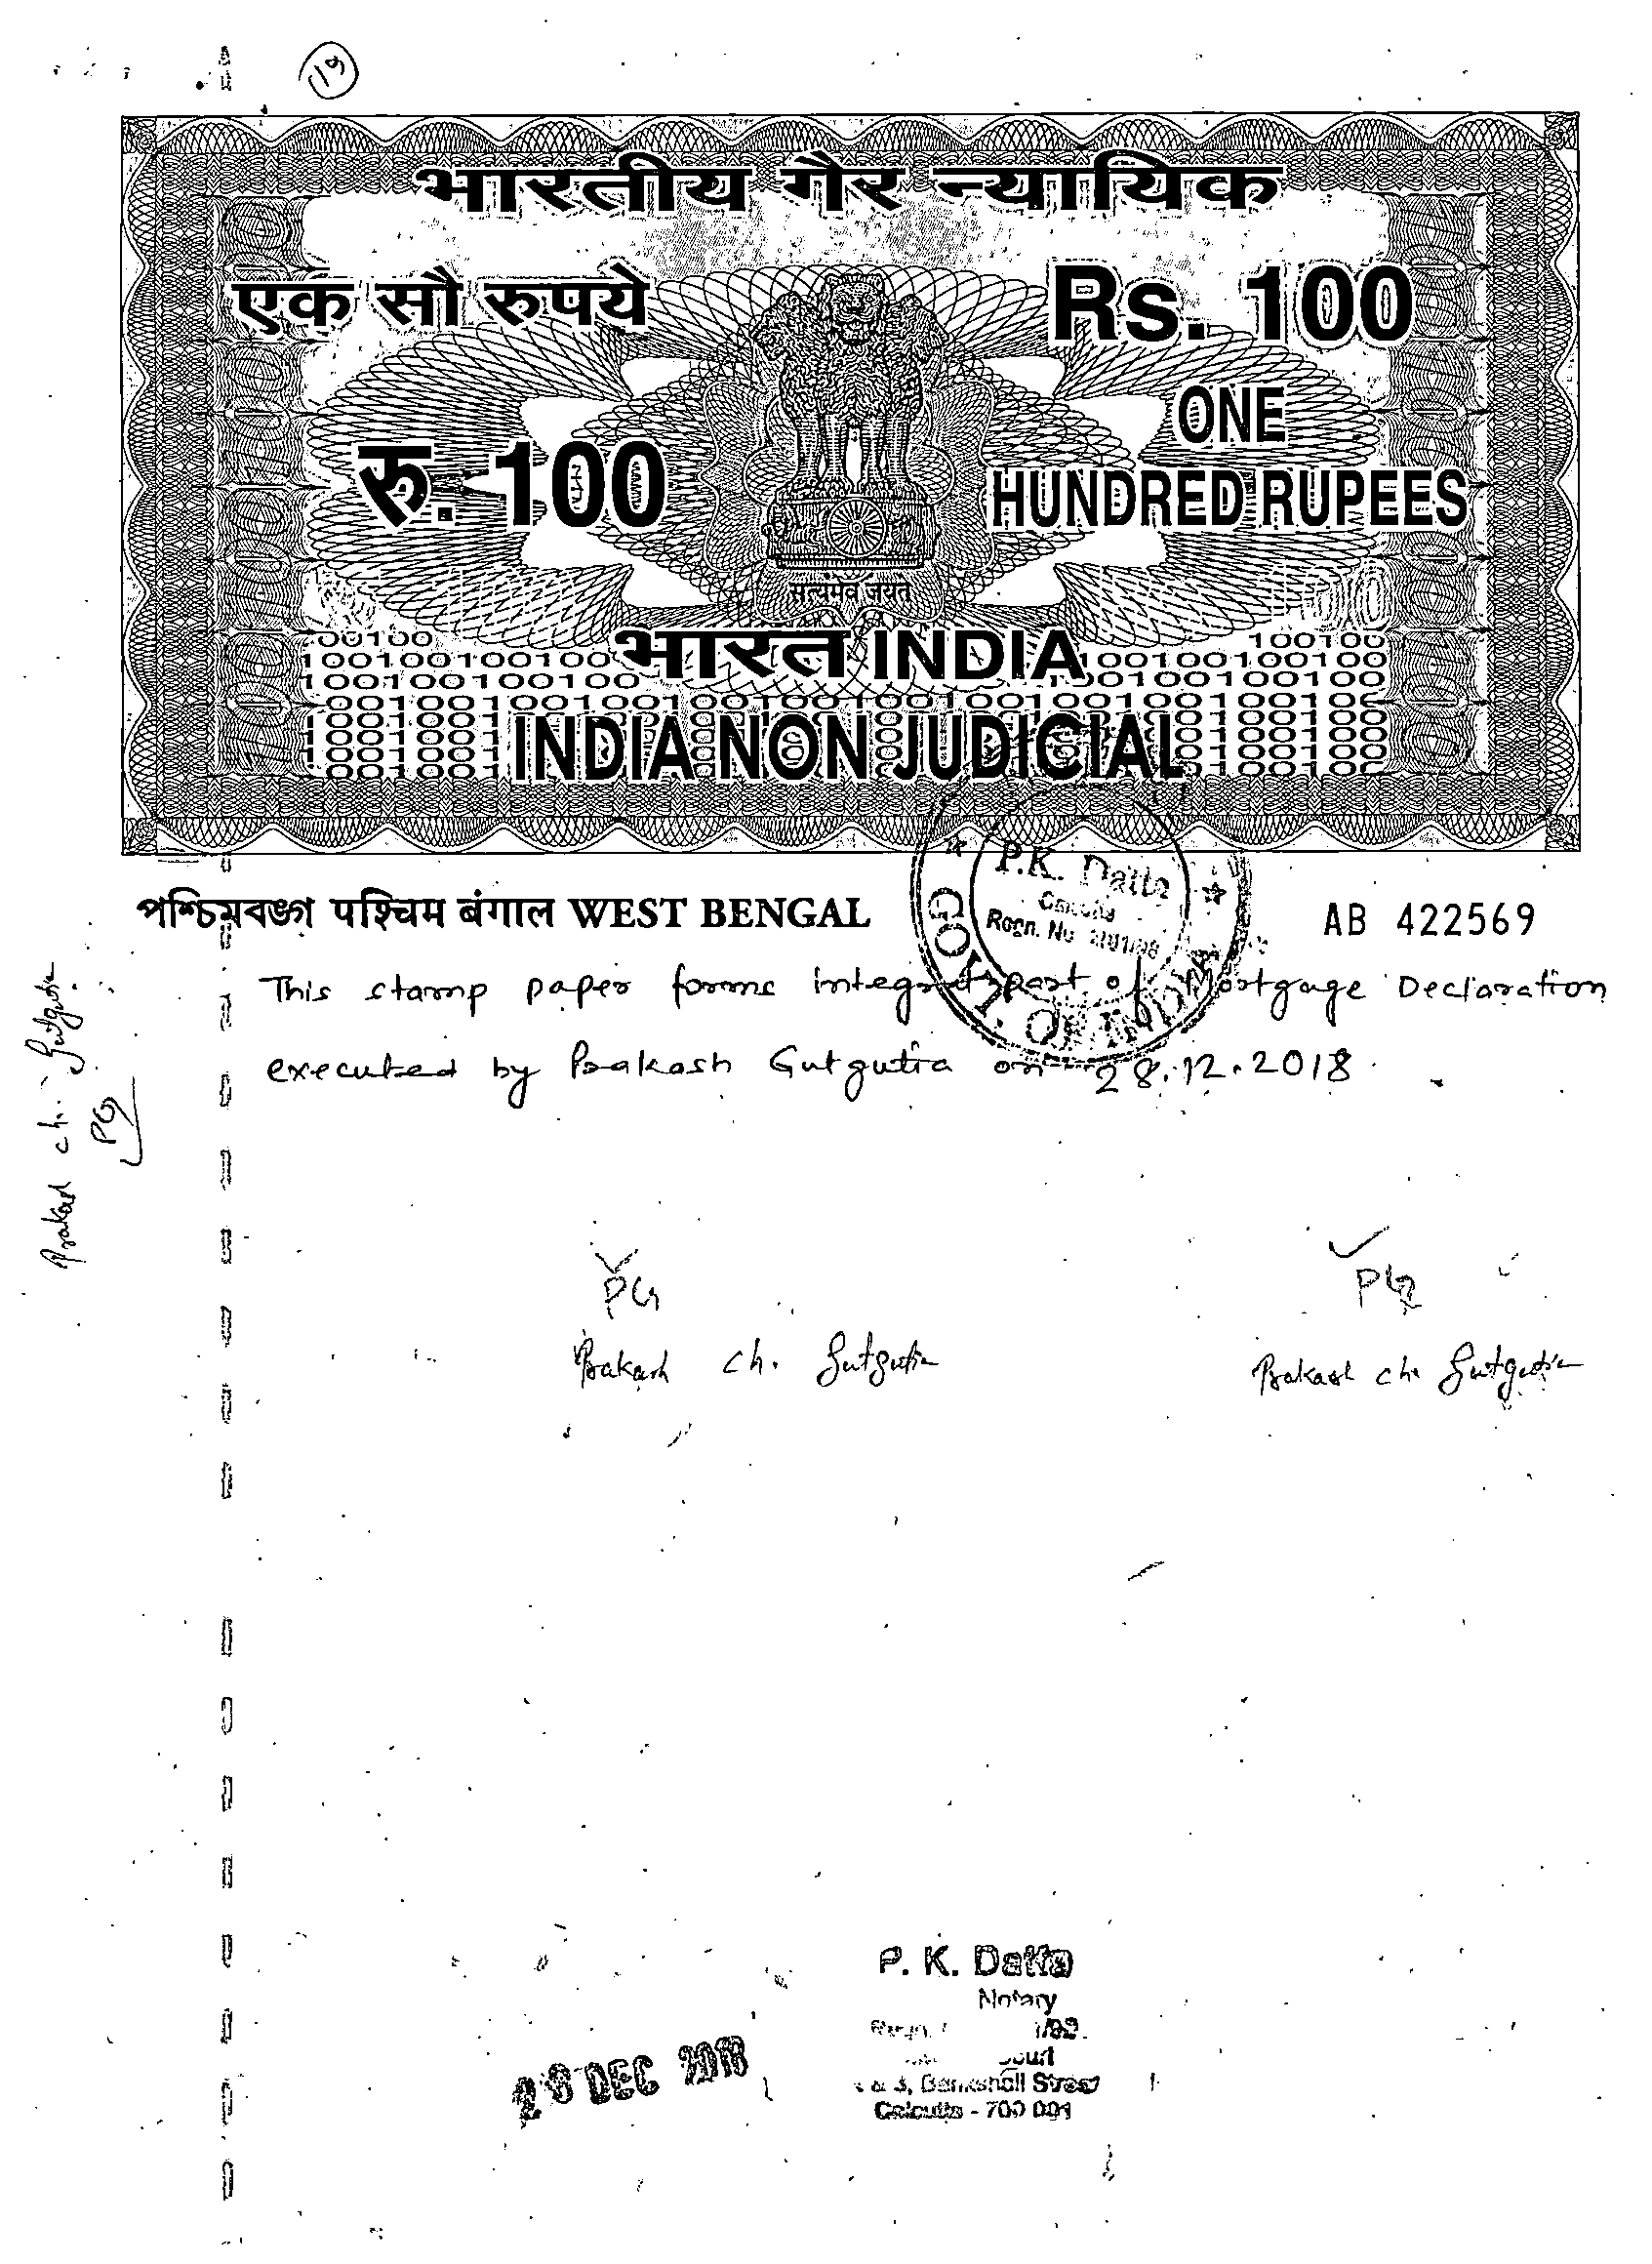 19
भारतीय गैर न्यायिक
एक सौ रुपये
Rs. 100
ONE
रु. 100
HUNDRED RUPEES
सत्यमेव जयते
भारत INDIA
INDIA NON JUDICIAL
পশ্চিমবঙ্গ पश्चिम बंगाल WEST BENGAL
AB 422569
P.K. Datta
Regn. No
GOVT. OF INDIA
This stamp paper forms integral part of Mortgage Declaration
executed by Prakash Gutgutia on 28.12.2018
Prakash ch. Gutgutia
PG
PG
PG
Prakash ch. Gutgutia
Prakash ch. Gutgutia
P. K. Datta
Notary
28 DEC 2018
Bankshall Street
Calcutta - 700 001